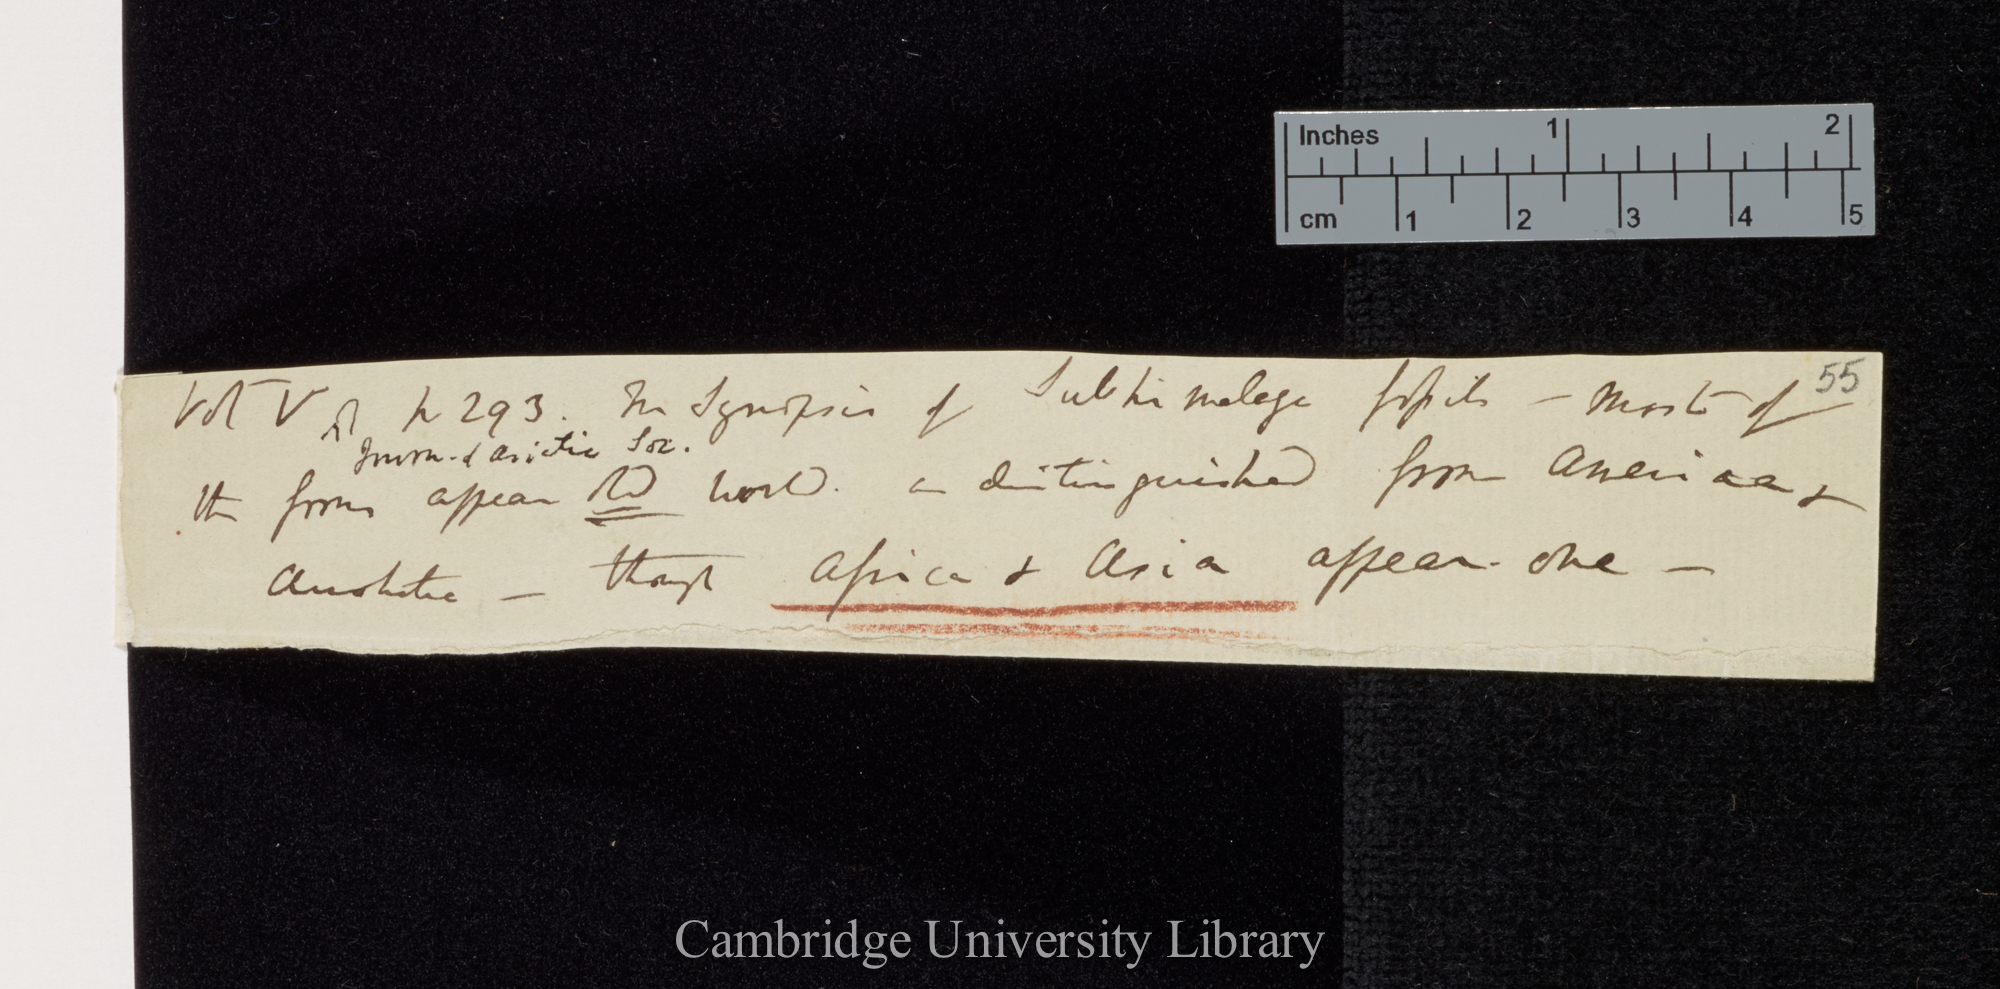 Inches 1 2
cm 1 2 3 4 5
55
Vol V p 293. In Synopsis of Subhimalaya fossils — most of
Journ. of Asiatic Soc.
the forms appear old world. as distinguished from America &
Australia — though Africa & Asia appear one —
Cambridge University Library